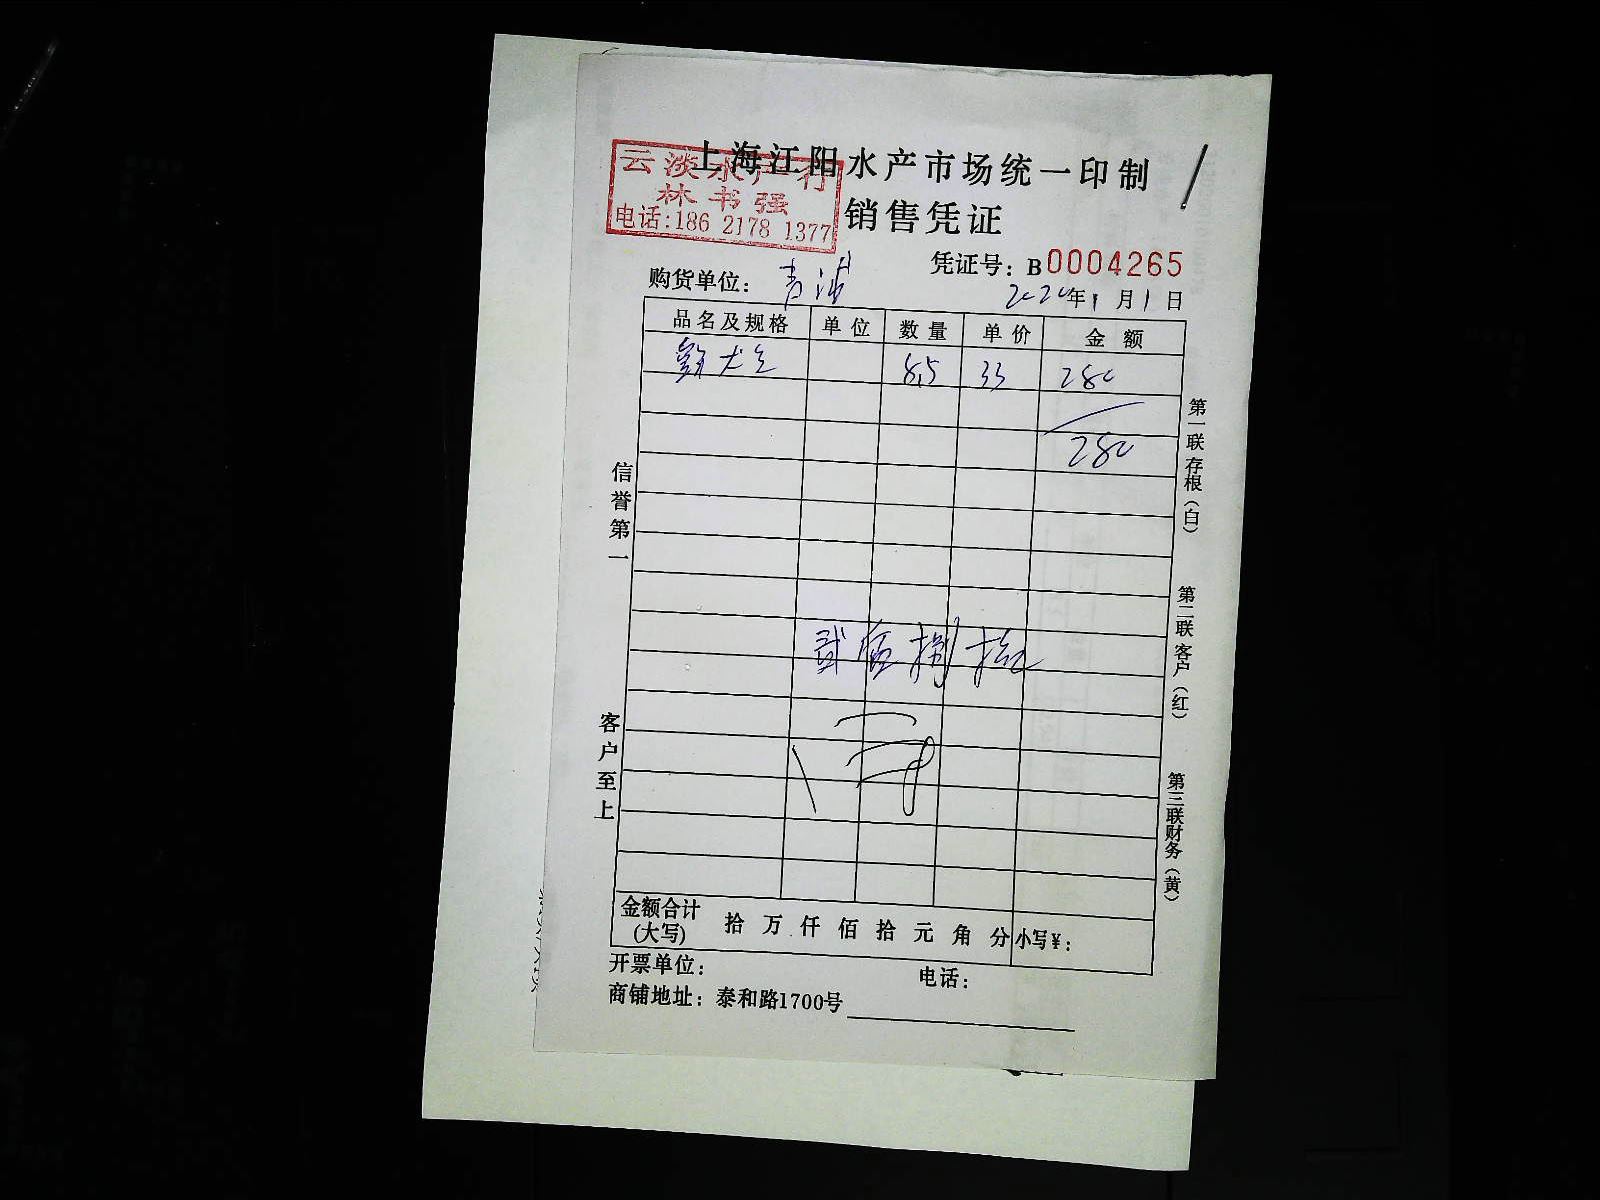 上海江阳水产市场统一印制
云淡水产行
林书强
电话:186 2178 1377
销售凭证
凭证号: B0004265
购货单位: 青浦
2020年1月1日
品名及规格 单位 数量 单价 金额
8.5 33 280
280
贰佰捌拾元
信誉第一
客户至上
第一联存根(白)
第二联客户(红)
第三联财务(黄)
金额合计(大写) 拾万仟佰拾元角分 小写¥:
开票单位: 电话:
商铺地址: 泰和路1700号